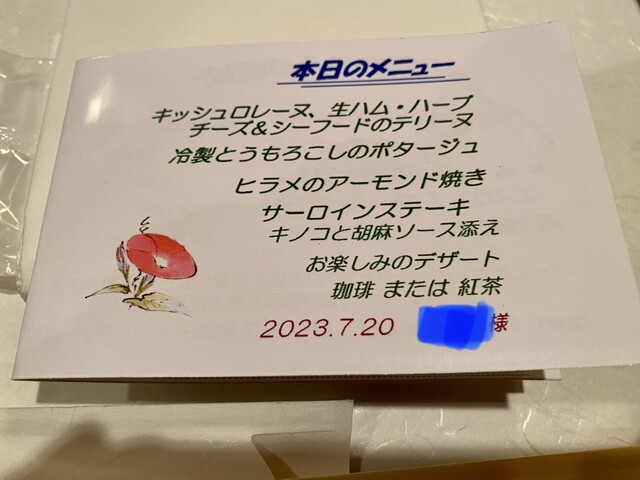 本日のメニュー
キッシュロレーヌ、生ハム・ハーブ
チーズ&シーフードのテリーヌ
冷製とうもろこしのポタージュ
ヒラメのアーモンド焼き
サーロインステーキ
キノコと胡麻ソース添え
お楽しみのデザート
珈琲 または 紅茶
2023.7.20 様